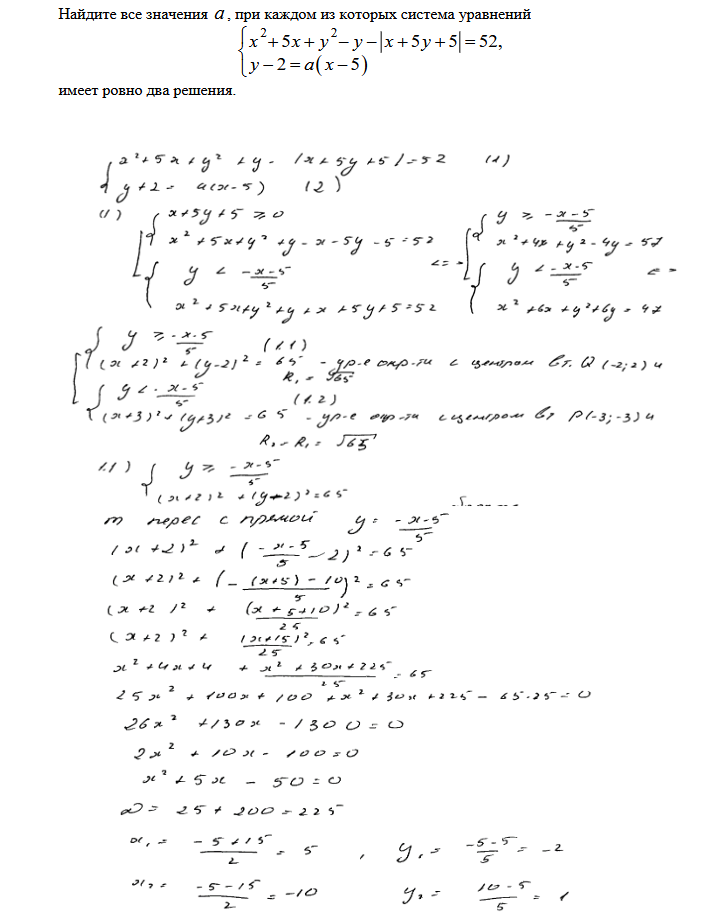 Найдите все значения a, при каждом из которых система уравнений
{ x²+5x+y²−y−|x+5y+5|=52,
{ y−2=a(x−5)
имеет ровно два решения.
{ x²+5x+y²+y- |x+5y+5|=52 (1)
{ y+2= a(x-5) (2)
(1) [ { x+5y+5≥0 [ { y ≥ (-x-5)/5
x²+5x+y²+y-x-5y-5=52 <=> x²+4x+y²-4y=57
{ y < (-x-5)/5 { y < (-x-5)/5 <=>
x²+5x+y²+y+x+5y+5=52 x²+6x+y²+6y=47
[ { y ≥ (-x-5)/5 (1.1)
(x+2)²+(y-2)²=65 - ур-е окр-ти с центром в т. Q(-2;2) и R₁=√65
{ y < (-x-5)/5 (1.2)
(x+3)²+(y+3)²=65 - ур-е окр-ти с центром в т P(-3;-3) и
R₂=R₁=√65
1.1) { y ≥ (-x-5)/5
(x+2)²+(y-2)²=65
т перес с прямой y= (-x-5)/5
(x+2)²+( (-x-5)/5 -2)²=65
(x+2)²+( (-(x+5)-10)/5 )²=65
(x+2)²+ (x+5+10)²/25 =65
(x+2)²+ (x+15)²/25 =65
x²+4x+4 + (x²+30x+225)/25 =65
25x²+100x+100+x²+30x+225-65·25=0
26x²+130x-1300=0
2x²+10x-100=0
x²+5x-50=0
D=25+200=225
x₁= (-5+15)/2 = 5, y₁= (-5-5)/5 = -2
x₂= (-5-15)/2 = -10 y₂= (10-5)/5 = 1